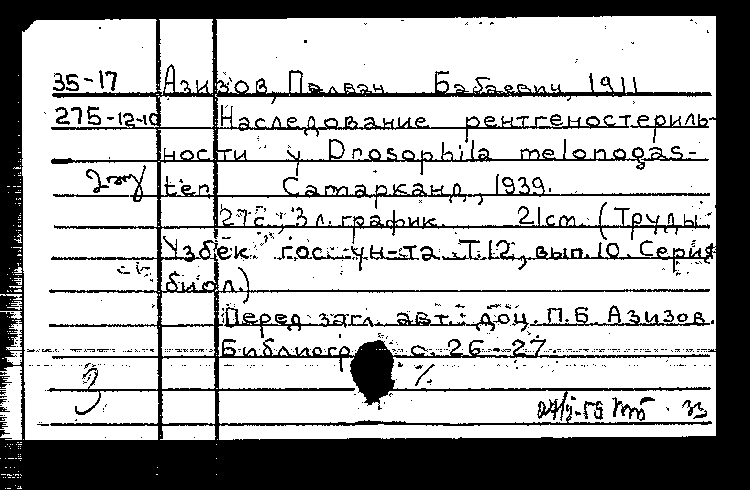 35-17 Азизов, Палван Бабаевич, 1911
275-12-10 Наследование рентгеностериль-
ности у Drosophila melonogas-
ter Самарканд, 1939.
27с., 3 л. график. 21см. (Труды
Узбек. гос. ун-та. Т.12, вып.10. Серия
биол.)
Перед загл. авт.: доц. П.Б. Азизов.
Библиогр. с. 26-27.
3
33